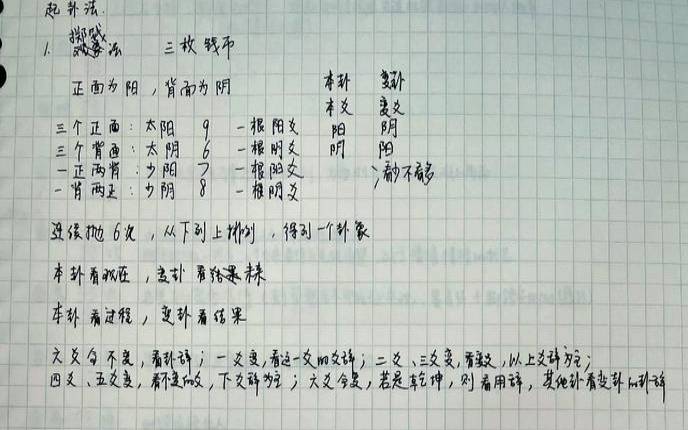 起卦法.
1. 掷钱法 三枚钱币
正面为阳，背面为阴 本卦 变卦
本爻 变爻
三个正面：太阳 9 一根阳爻 阳 阴
三个背面：太阴 6 一根阴爻 阴 阳
一正两背：少阳 7 一根阳爻
一背两正：少阴 8 一根阴爻
连续抛6次，从下到上排列，得到一个卦象
本卦看现在，变卦看结果未来
本卦看过程，变卦看结果
六爻全不变，看卦辞；一爻变，看这一爻的爻辞；二爻、三爻变，看变爻，以上爻辞为主；
四爻、五爻变，看不变的爻，下爻辞为主；六爻全变，若是乾坤，则看用辞，其他卦看变卦的卦辞